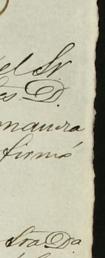 el Sr
os D.
manera
firmó
Sra Da